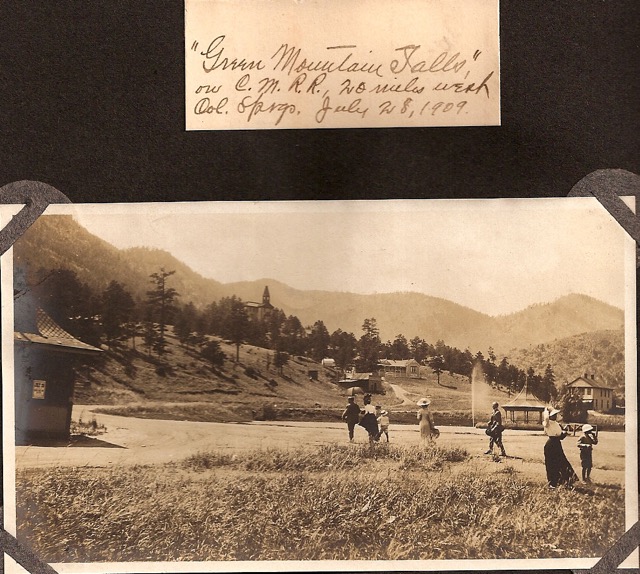 "Green Mountain Falls,"
on C. M. R.R., 20 miles west
Col. Spgs. July 28, 1909.